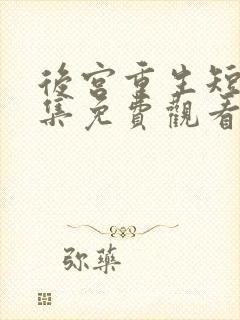 後宮重生短
集免費觀看
弥藥